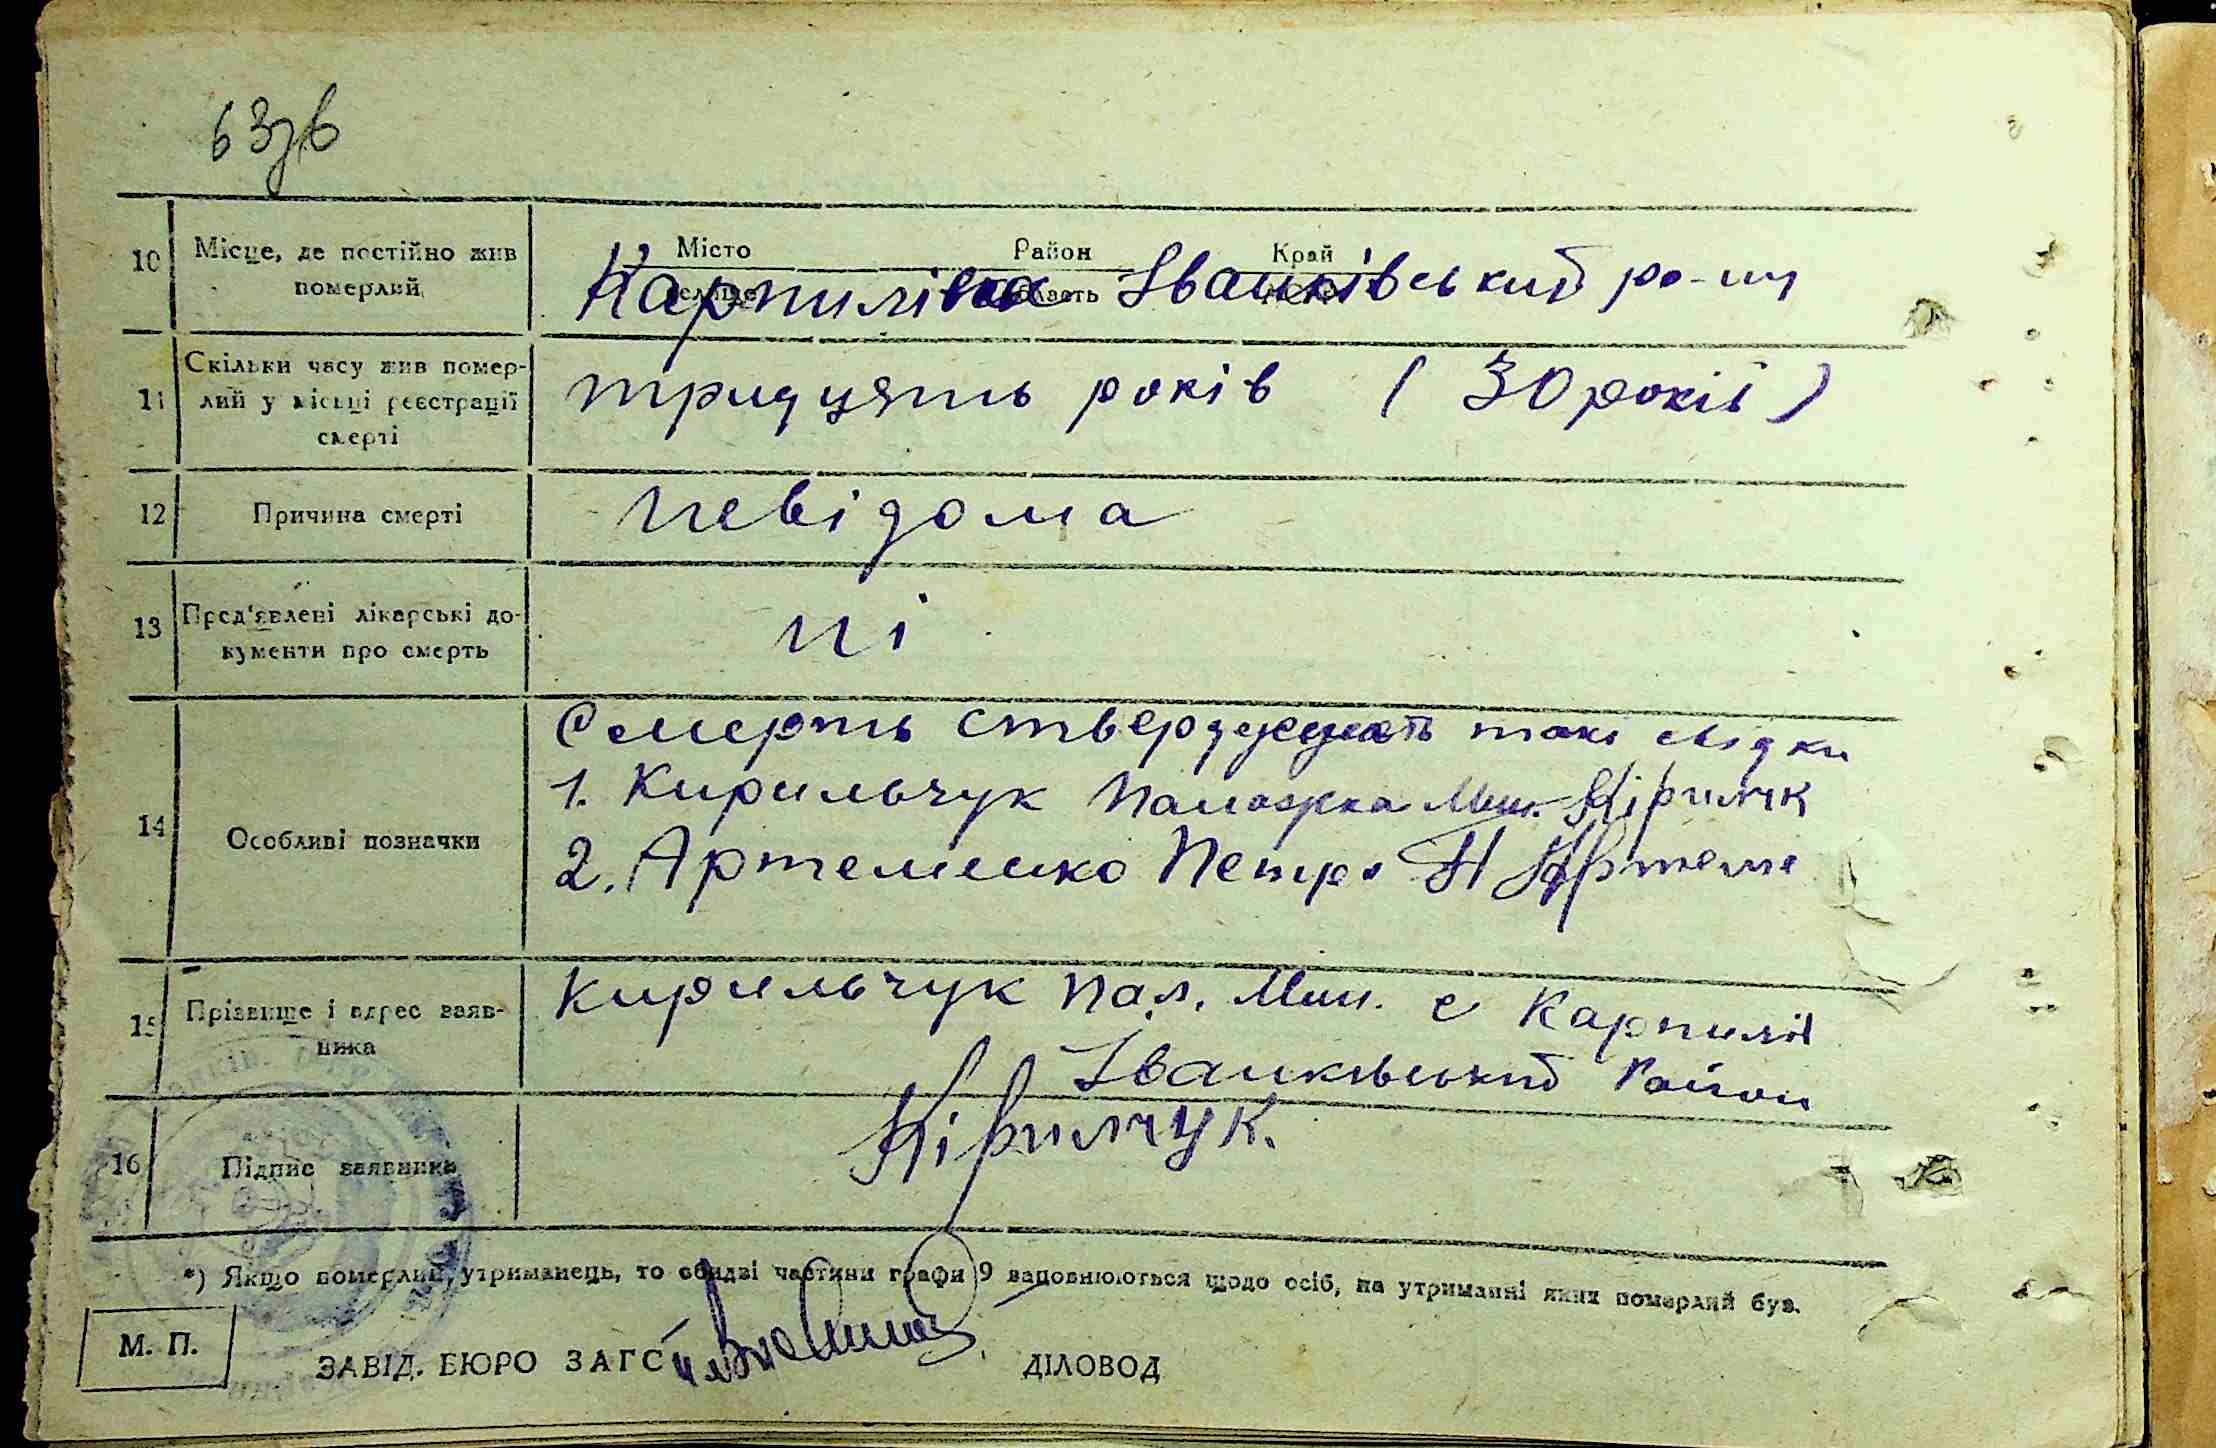 63зв
10 Місце, де постійно жив померлий
Місто Район Край
селище область
Карпилівка Іванківський ро-ну
11 Скільки часу жив помер-
лий у місці реєстрації
смерті
тридцять років ( 30 років )
12 Причина смерті
невідома
13 Пред'явлені лікарські до-
кументи про смерть
ні
14 Особливі позначки
Смерть стверджують такі свідки
1. Кирильчук Палажка Мин. Кірилчук
2. Артеменко Петро А Артеме
15 Прізвище і адрес заяв-
ника
Кирильчук Пал. Мин. с Карпилів
Іванківський Район
16 Підпис заявника
Кірилчук.
*) Якщо померлий утриманець, то обидві частини графи 9 заповнюються щодо осіб, на утриманні яких померлий був.
М. П.
ЗАВІД. БЮРО ЗАГС ДІЛОВОД